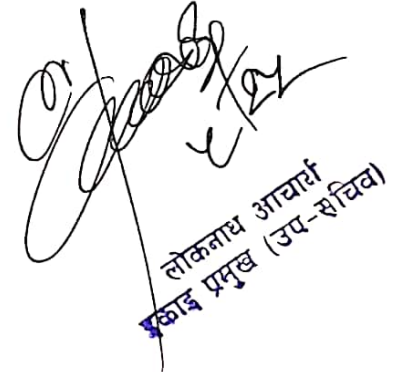 लोकनाथ आचार्य
इकाइ प्रमुख (उप-सचिव)